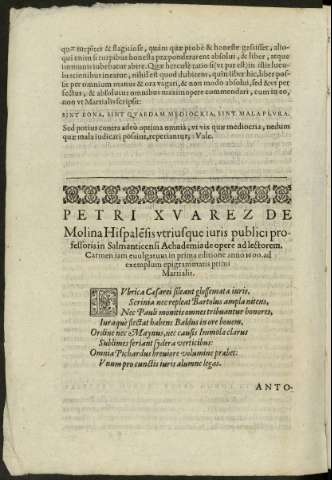 quæ turpiter & flagitiosè, quàm quæ probè & honestè gessisset, alio-
qui enim si turpibus honesta præponderarent absolui, & liber, atque
immunis iubebatur abire. Quæ hercule ratio si vt par est, in istis locu-
bretur, nihil est quod dubitem, quin liber hic, liber pos-
sit per omnium manus & ora vagari, & non modo absolui, sed & vt per
fectus, & absolutus omnibus maximopere commendari, cum in eo,
non vt Martialis scripsit:
SVNT BONA, SVNT QVAEDAM MEDIOCRIA, SVNT MALA PLVRA.
Sed potius contra adeò optima omnia, vt vix quæ mediocria, nedum
quæ mala iudicari possint, reperiantur. Vale.
PETRI XVAREZ DE
Molina Hispalēsis vtriusque iuris publici pro-
fessoris in Salmanticensi Achademia de opere ad lectorem.
Carmen iam euulgatum in prima editione anno 1600. ad
exemplum epigrammatis primi
Martialis.
RVbrica Cæsarei sileant glossemata iuris,
Scrinia nec repleat Bartolus ampla nitens,
Nec Pauli monitis omnes tribuantur honores,
Iuraque sectat habens Baldus in ore bonem,
Ordine nec Maynus, nec causis Immola clarus
Sublimes feriant sydera verticibus:
Omnia Pichardus breuiore volumine præbet:
Vnum pro cunctis iuris alumne legas.
ANTO-